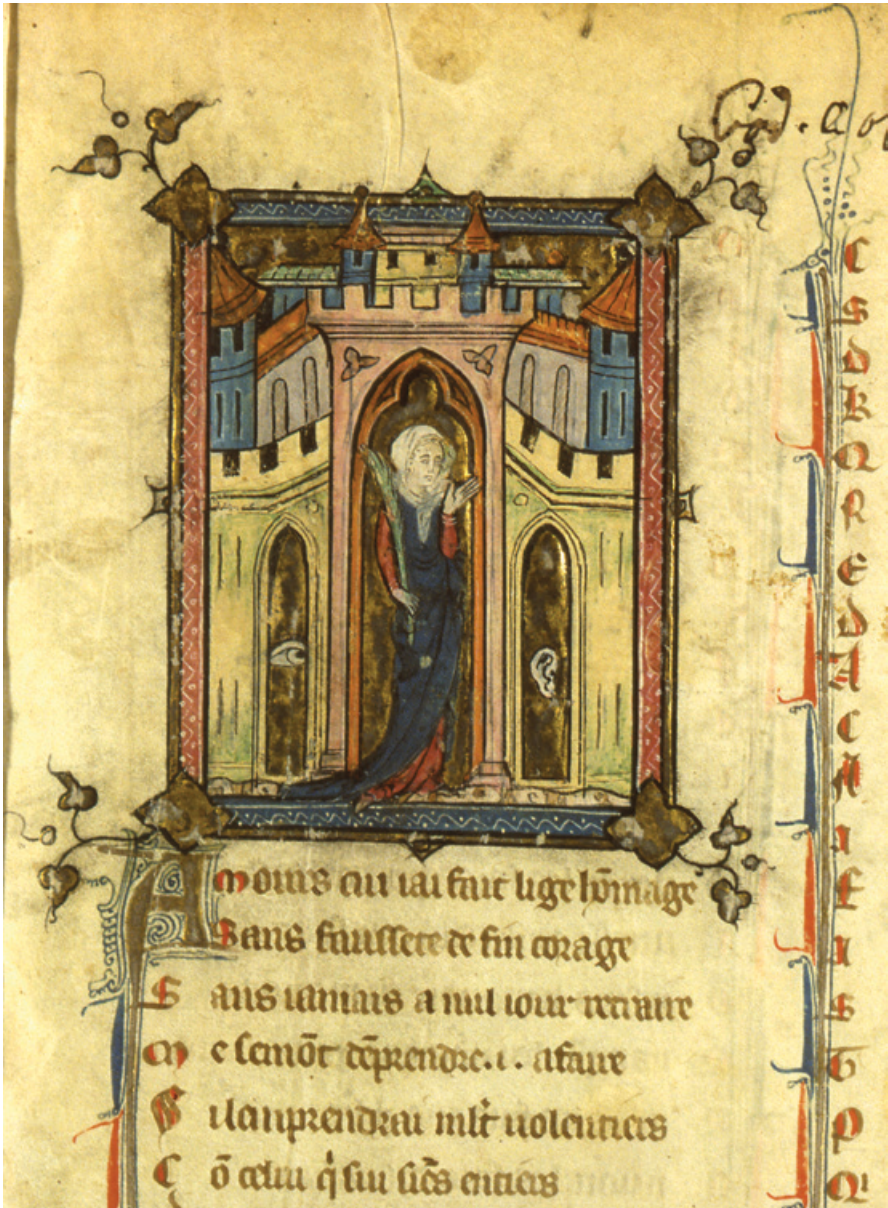 Amours cui iai fait lige hōmage
Sans faussete de fin corage
Sans iamais a nul iour retraire
Me semōt dēprendre .i. afaire
Si lanprendrai mlt uolentiers
Cō celui qi sui siēs entiers